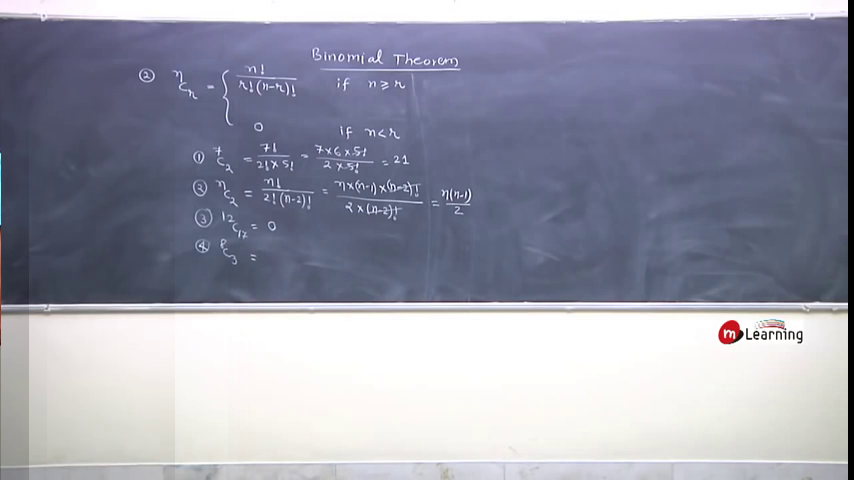 Binomial Theorem
② ⁿCᵣ = { n! / r!(n-r)! if n ≥ r
0 if n < r
① ⁷C₂ = 7! / 2! × 5! = 7 × 6 × 5! / 2 × 5! = 21
② ⁿC₂ = n! / 2!(n-2)! = n × (n-1) × (n-2)! / 2 × (n-2)! = n(n-1) / 2
③ ¹²C₁₇ = 0
④ ⁸C₃ =
m Learning